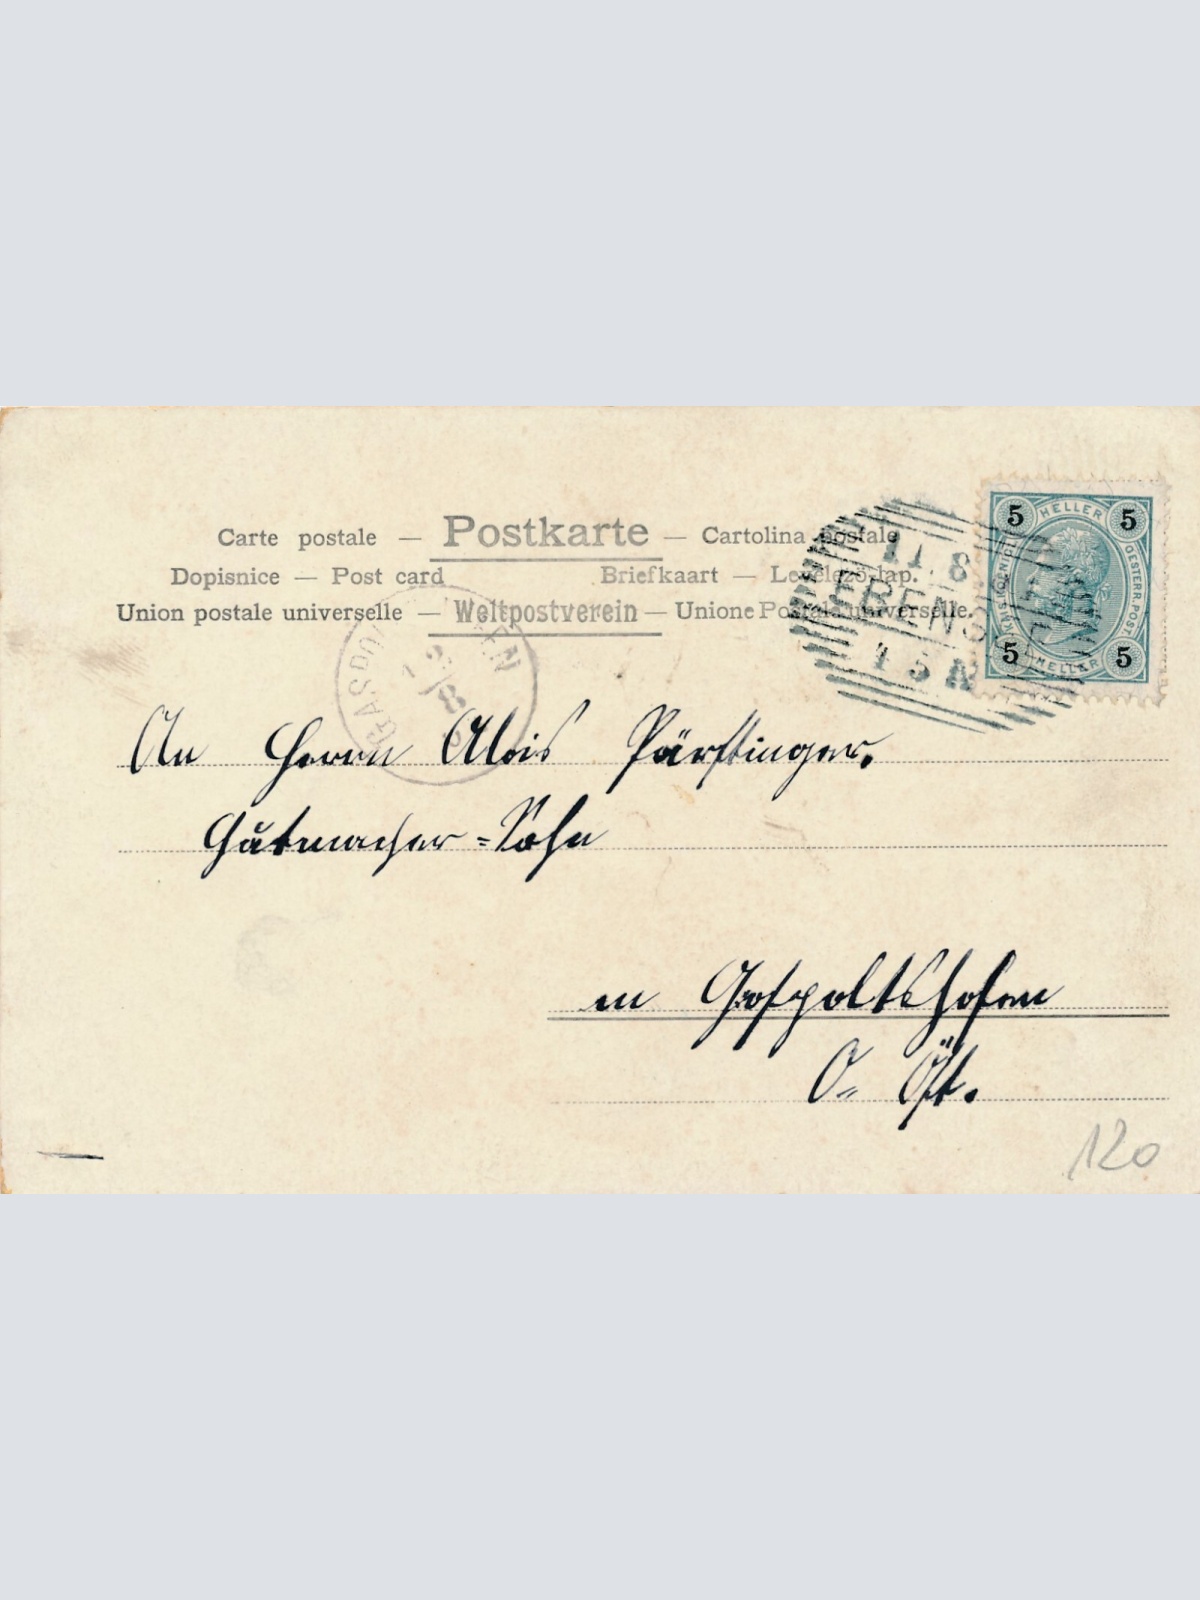 Carte postale — Postkarte — Cartolina postale
Dopisnice — Post card Briefkaart — Levelező-lap.
Union postale universelle — Weltpostverein — Unione Postale universelle.
5 HELLER 5
OESTERR. POST
5 HELLER 5
11 8
EBENS
4 5 N
An Herrn Alois
Hutmacher=Sohn
in Gaspoltshofen
O= Öst.
120